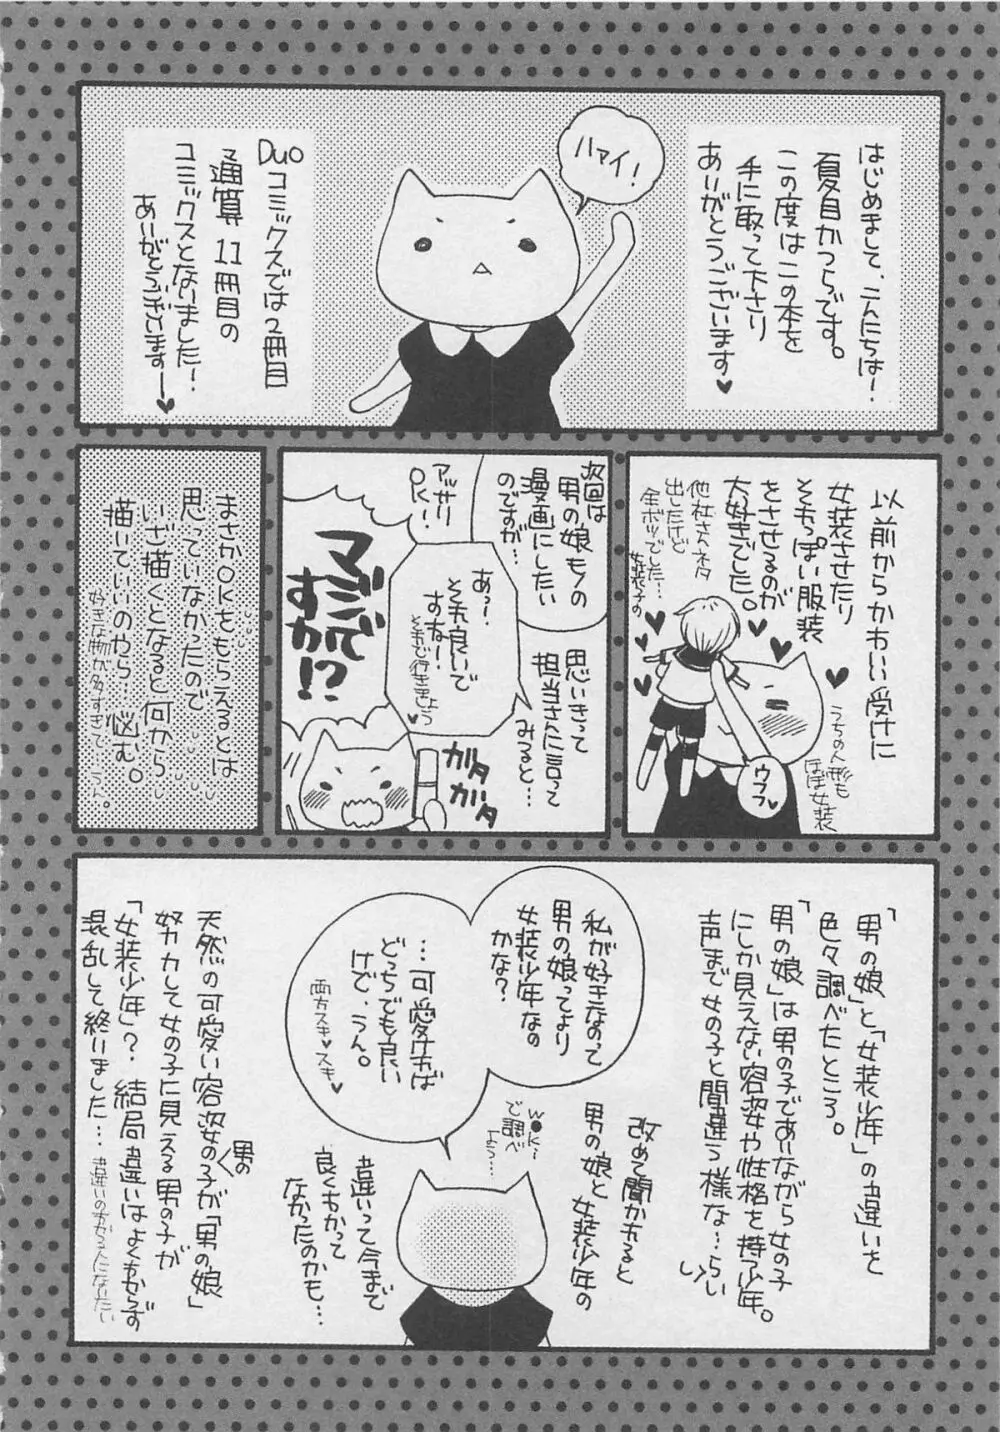 はじめまして、こんにちは!
夏目かつらです。
この度はこの本を
手に取って下さり
ありがとうございます♥
ハァイ!
Duoコミックスでは2冊目
通算11冊目の
コミックスとなりました!
ありがとうございますー♥
以前からかわい受けに
女装させたり
それっぽい服装
をさせるのが
大好きでした。
他社さんネタ
出したけど
全ボツでした…
女装子の
うちの人形も
ほぼ女装
ウフフ♥
次回は
男の娘もの
漫画にしたい
のですが…
思いきって
担当さんに言って
みると…
あっ!
それ良いで
すねー!
それで行きましょう♥
アッサリ
OK!
マジで
すか!?
ガタ
ガタ
まさかOKをもらえるとは
思っていなかったので
いざ描くとなると何から
描いていいのやら…悩む。
好きな物が多すぎて、うん。
「男の娘」と「女装少年」の違いを
色々調べたところ。
「男の娘」は男の子でありながら女の子
にしか見えない容姿や性格を持つ少年。
声まで女の子と間違う様な…らしい
改めて聞かれると
男の娘と女装少年の
私が好きなのって
男の娘ってより
女装少年なの
かな?
…可愛ければ
どっちでも良い
けど、うん。
両方スキ♥スキ♥
w●k…
で調べ
よう…
違いって今まで
良くわかって
なかったのかも…
天然の可愛い容姿の男の子が「男の娘」
努力して女の子に見える男の子が
「女装少年」?結局違いはよくわからず
混乱して終りました…
違いのわかる人になりたい